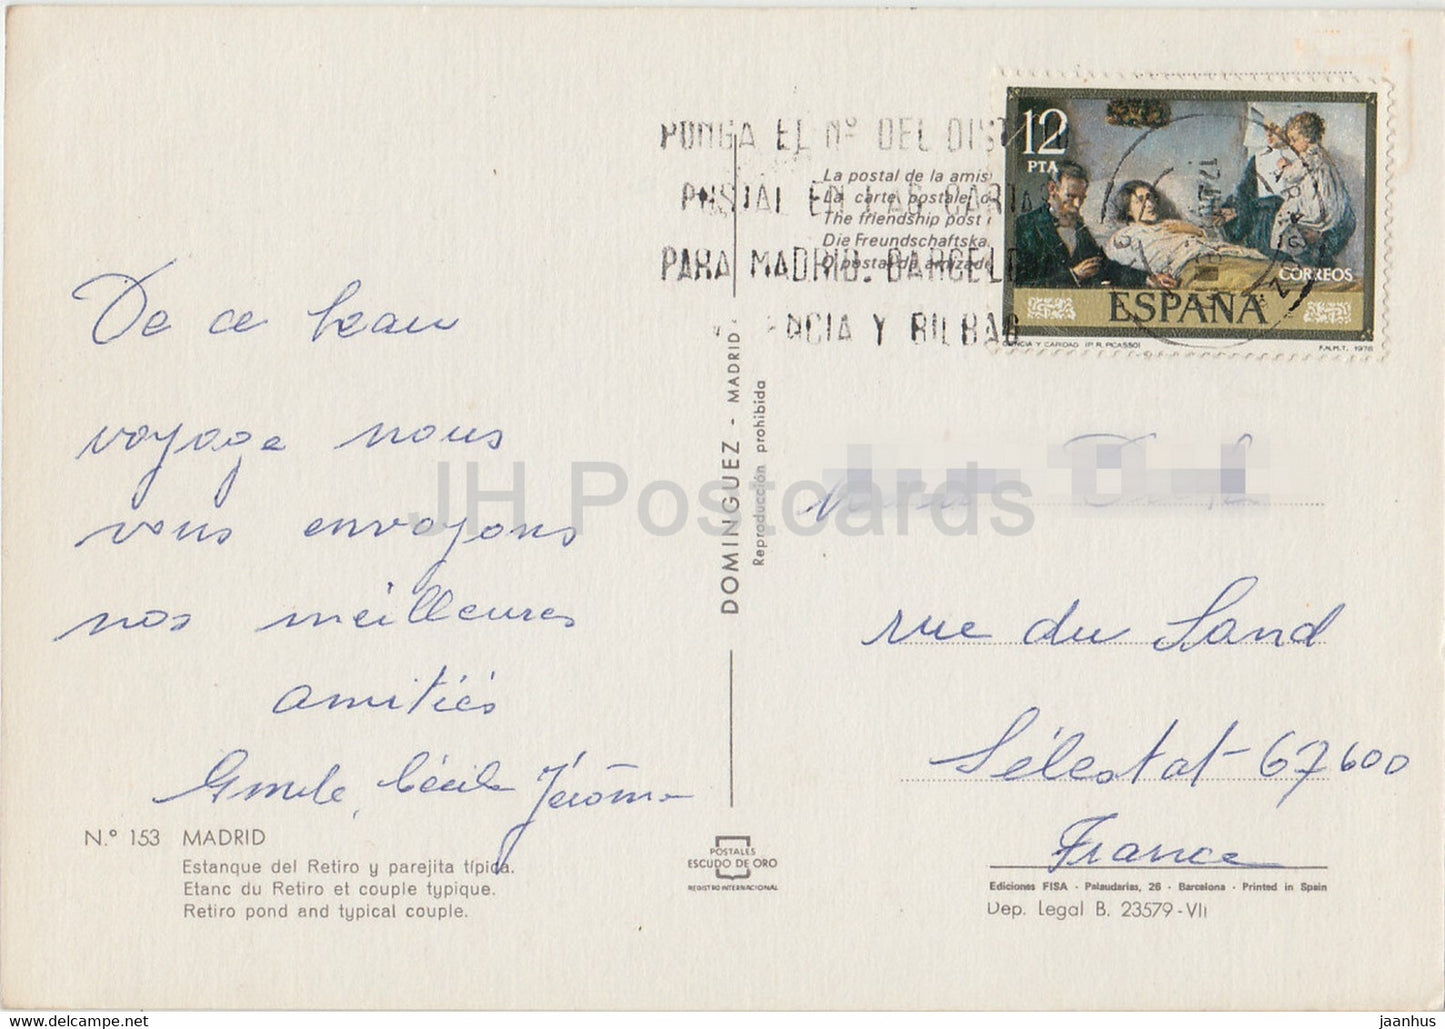 De ce beau
voyage nous
vous envoyons
nos meilleures
amitiés
Cécile Jérôme
N.º 153 MADRID
Estanque del Retiro y parejita típica.
Etanc du Retiro et couple typique.
Retiro pond and typical couple.
DOMINGUEZ - MADRID
Reproducción prohibida
POSTALES
ESCUDO DE ORO
REGISTRO INTERNACIONAL
PONGA EL Nº DEL DIST
POSTAL EN LAS CARTAS
PARA MADRID. BARCELONA
VALENCIA Y BILBAO
La postal de la amis
La carte postale
The friendship post
Die Freundschaftska
O postal da amizade
12
PTA
CORREOS
ESPAÑA
CIENCIA Y CARIDAD (P. R. PICASSO)
F.N.M.T. 1978
rue du Sand
Sélestat 67600
France
Ediciones FISA - Palaudarias, 26 - Barcelona - Printed in Spain
Dep. Legal B. 23579-VII
JH Postcards
www.delcampe.net
jaanhus